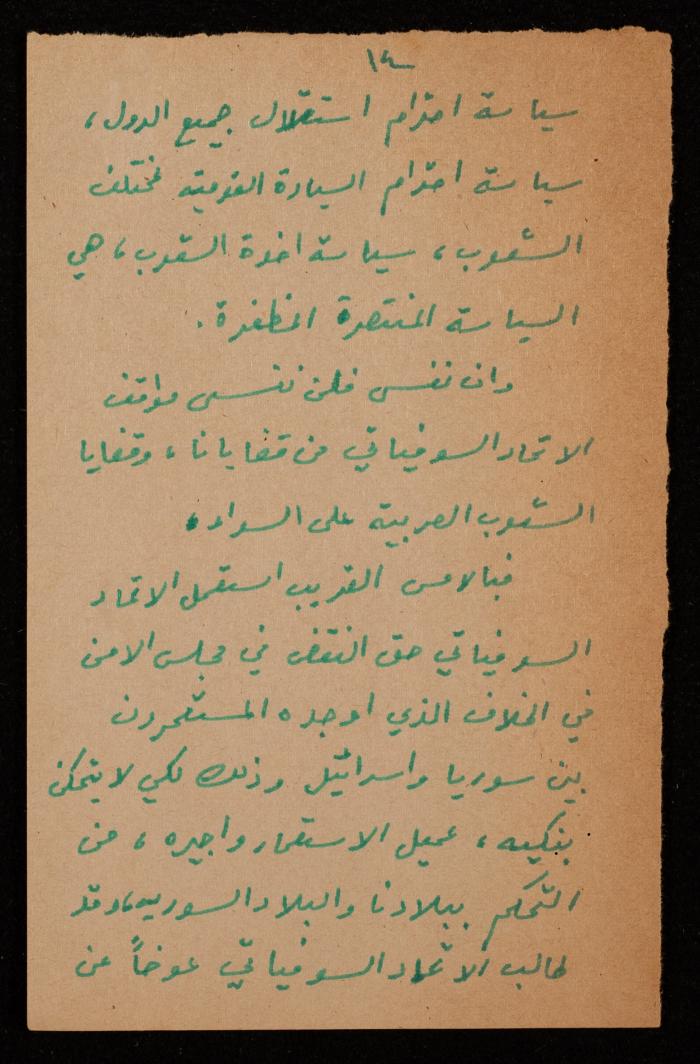 ١٤
سياسة احترام استقلال جميع الدول،
سياسة احترام السيادة القومية لمختلف
الشعوب، سياسة اخوة الشعوب، هي
السياسة المنتصرة المظفرة.
وان ننسى فلن ننسى مواقف
الاتحاد السوفياتي من قضايانا، وقضايا
الشعوب العربية على السواء،
فبالامس القريب استعمل الاتحاد
السوفياتي حق النقض في مجلس الامن
في الخلاف الذي اوجده المستعمرون
بين سوريا واسرائيل وذلك لكي لا يتمكن
بنكيه، عميل الاستعمار واجيره، من
التحكم ببلادنا والبلاد السورية، وقد
طالب الاتحاد السوفياتي عوضاً عن